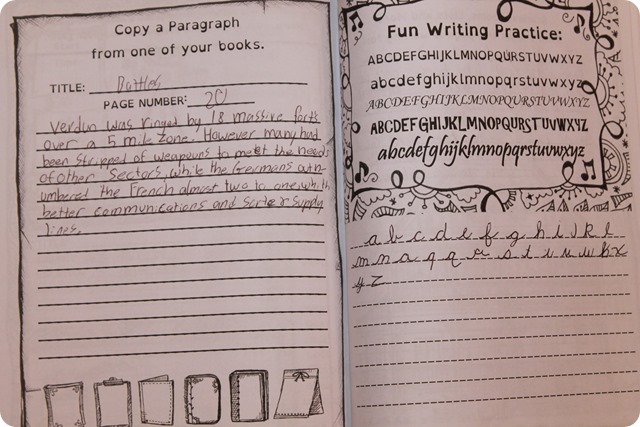 Copy a Paragraph
from one of your books.
TITLE: Battles
PAGE NUMBER: 20
Verdun was ringed by 18 massive forts
over a 5 mile zone. However many had
been stripped of weapouns to meet the needs
of other Sectors, while the Germans outn-
umbered the French almost two to one, with
better communications and Sorter Supply
lines.
Fun Writing Practice:
ABCDEFGHIJKLMNOPQRSTUVWXYZ
abcdefghijklmnopqrstuvwxyz
ABCDEFGHIJKLMNOPQRSTUVWXYZ
ABCDEFGHIJKLMNOPQRSTUVWXYZ
abcdefghijklmnopqrstuvwxyz
a b c d e f g h i j k l
m n a q q r s t u v w x
y z